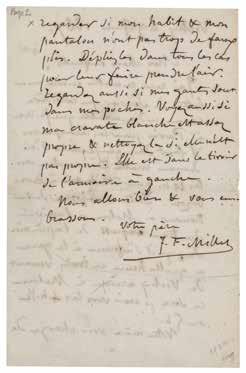 Page 2
x regarder si mon habit & mon
pantalon n'ont pas trop de faux
plis. Dépliez les dans tous les cas
pour leur faire prendre l'air.
Regardez aussi si mes gants sont
dans mes poches. Voyez aussi si
ma cravate blanche est assez
propre & nettoyez la si elle n'est
pas propre. Elle est dans le tiroir
de l'armoire à gauche.
Nous allons bien & vous em-
brassons.
Votre père
J. F. Millet